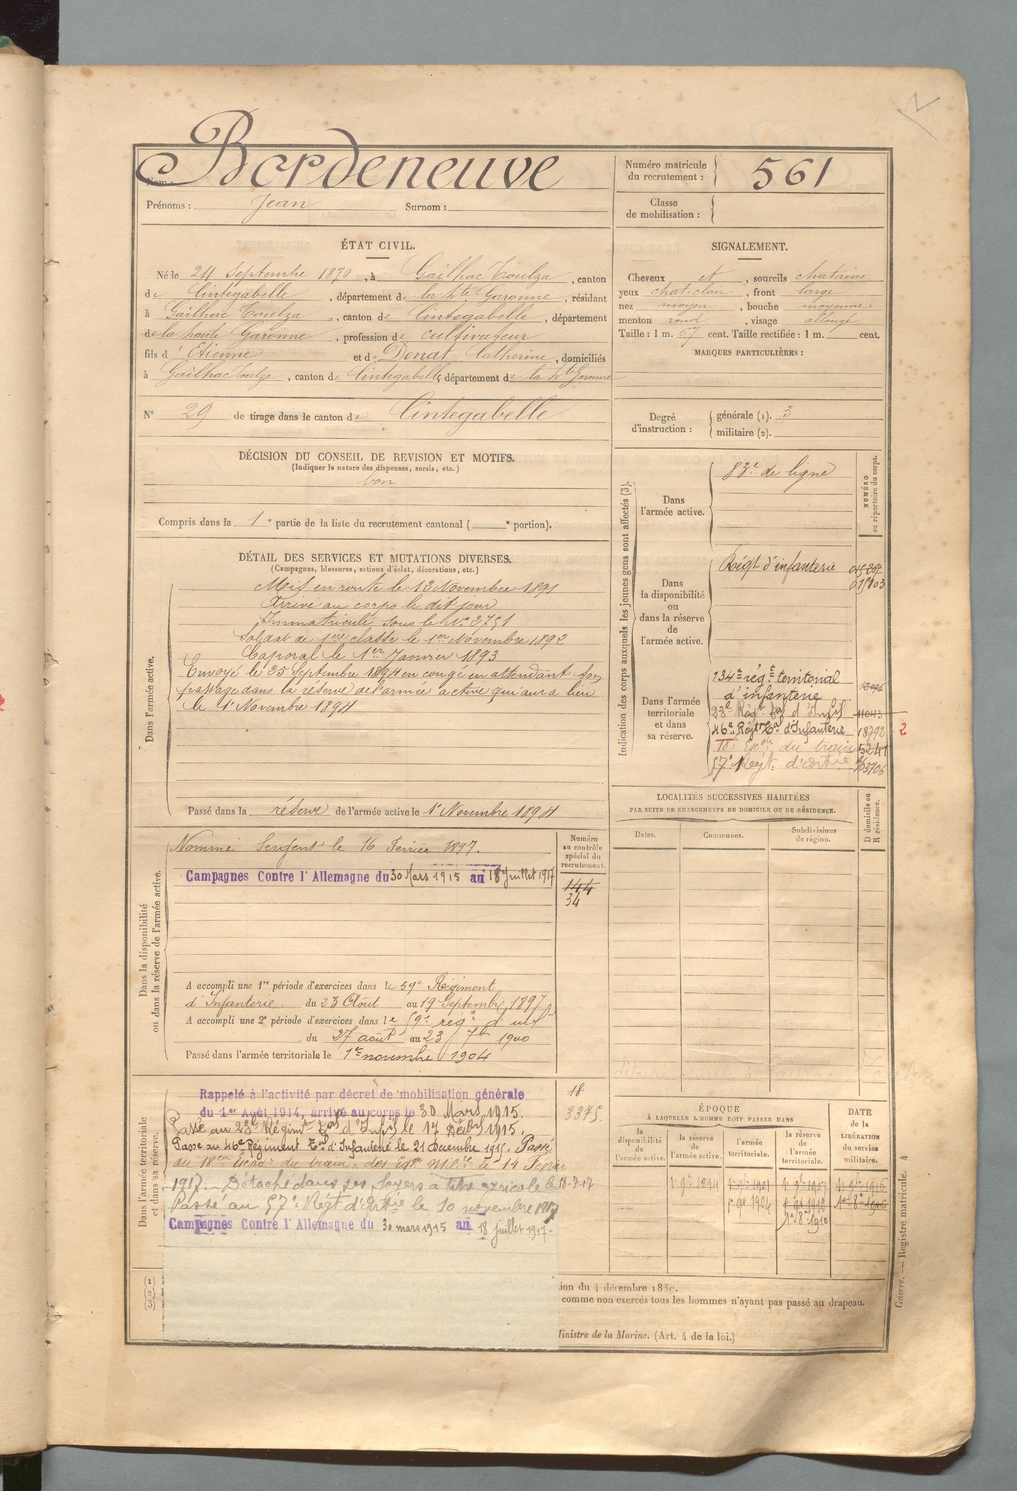 Nom : Bordeneuve
Prénoms : Jean Surnom :
Numéro matricule du recrutement : 561
Classe de mobilisation :
ÉTAT CIVIL.
Né le 24 Septembre 1870, à Gailhac Toulza, canton
de Cintegabelle, département de la hte Garonne, résidant
à Gailhac Toulza, canton de Cintegabelle, département
de la haute Garonne, profession de cultivateur
fils d'Etienne et de Donat Catherine, domiciliés
à Gailhac Toulza, canton de Cintegabelle, département de la hte Garonne
N° 29 de tirage dans le canton de Cintegabelle
SIGNALEMENT.
Cheveux et, sourcils chatains
yeux chat. clair, front large
nez moyen, bouche moyenne
menton rond, visage allongé
Taille : 1 m. 67 cent. Taille rectifiée : 1 m. cent.
MARQUES PARTICULIÈRES :
Degré d'instruction : générale (1). 3
militaire (2).
DÉCISION DU CONSEIL DE REVISION ET MOTIFS.
(Indiquer la nature des dispenses, sursis, etc.)
bon
Compris dans la 1e partie de la liste du recrutement cantonal ( e portion).
DÉTAIL DES SERVICES ET MUTATIONS DIVERSES.
(Campagnes, blessures, actions d'éclat, décorations, etc.)
Dans l'armée active.
Mis en route le 13 Novembre 1891
Arrivé au corps le dit jour
Immatriculé sous le N° 2751
Soldat de 1ere classe le 1er Novembre 1892
Caporal le 1er Janvier 1893
Envoyé le 25 Septembre 1894 en congé en attendant son
passage dans la réserve de l'armée active qui aura lieu
le 1er Novembre 1894
Passé dans la réserve de l'armée active le 1er Novembre 1894
Indication des corps auxquels les jeunes gens sont affectés (3).
NUMÉRO au répertoire du corps.
Dans l'armée active.
83e de ligne
Dans la disponibilité ou dans la réserve de l'armée active.
Régt d'infanterie
Dans l'armée territoriale et dans sa réserve.
134e rég t territorial
d'infanterie
23e Régt Tal d'Infie 11043
46e Régt Tal d'Infanterie 18792 2
18e Escon du train 5241
57e Régt d'artie
LOCALITÉS SUCCESSIVES HABITÉES
PAR SUITE DE CHANGEMENTS DE DOMICILE OU DE RÉSIDENCE.
Dates. Communes. Subdivisions de région. D domicile ou R résidence.
Dans la disponibilité ou dans la réserve de l'armée active.
Numéro au contrôle spécial du recrutement.
Nommé Sergent le 16 Fevrier 1897.
Campagnes Contre l'Allemagne du 30 Mars 1915 au 18 Juillet 1917
144
34
A accompli une 1re période d'exercices dans le 59e Régiment
d'Infanterie du 23 Aout au 19 Septembre 1897
A accompli une 2e période d'exercices dans le 59e régt d'inf
du 27 août au 23 7bre 1900
Passé dans l'armée territoriale le 1er novembre 1904
Dans l'armée territoriale et dans sa réserve.
Rappelé à l'activité par décret de mobilisation générale
du 1er Août 1914, arrivé au corps le 30 Mars 1915.
Passé au 23e Régimt Tal d'Infie le 17 Décbre 1915.
Passé au 46e Régiment Tal d'Infanterie le 21 decembre 1915. Passé
au 18e Escon du train le 14 Fevrier
1917. Détaché dans ses foyers à titre agricole le 18-7-17
Passé au 57e Régt d'Artie le 10 novembre 1917
Campagnes Contre l'Allemagne du 30 mars 1915 au 18 juillet 1917
18
3375
ÉPOQUE
À LAQUELLE L'HOMME DOIT PASSER DANS
la disponibilité de l'armée active. la réserve de l'armée active. l'armée territoriale. la réserve de l'armée territoriale.
DATE de la LIBÉRATION du service militaire.
1er 9bre 1894
ion du 4 décembre 1889.
comme non exercés tous les hommes n'ayant pas passé au drapeau.
Ministre de la Marine. (Art. 4 de la loi.)
(1)
(2)
(3)
Guerre. — Registre matricule. 4